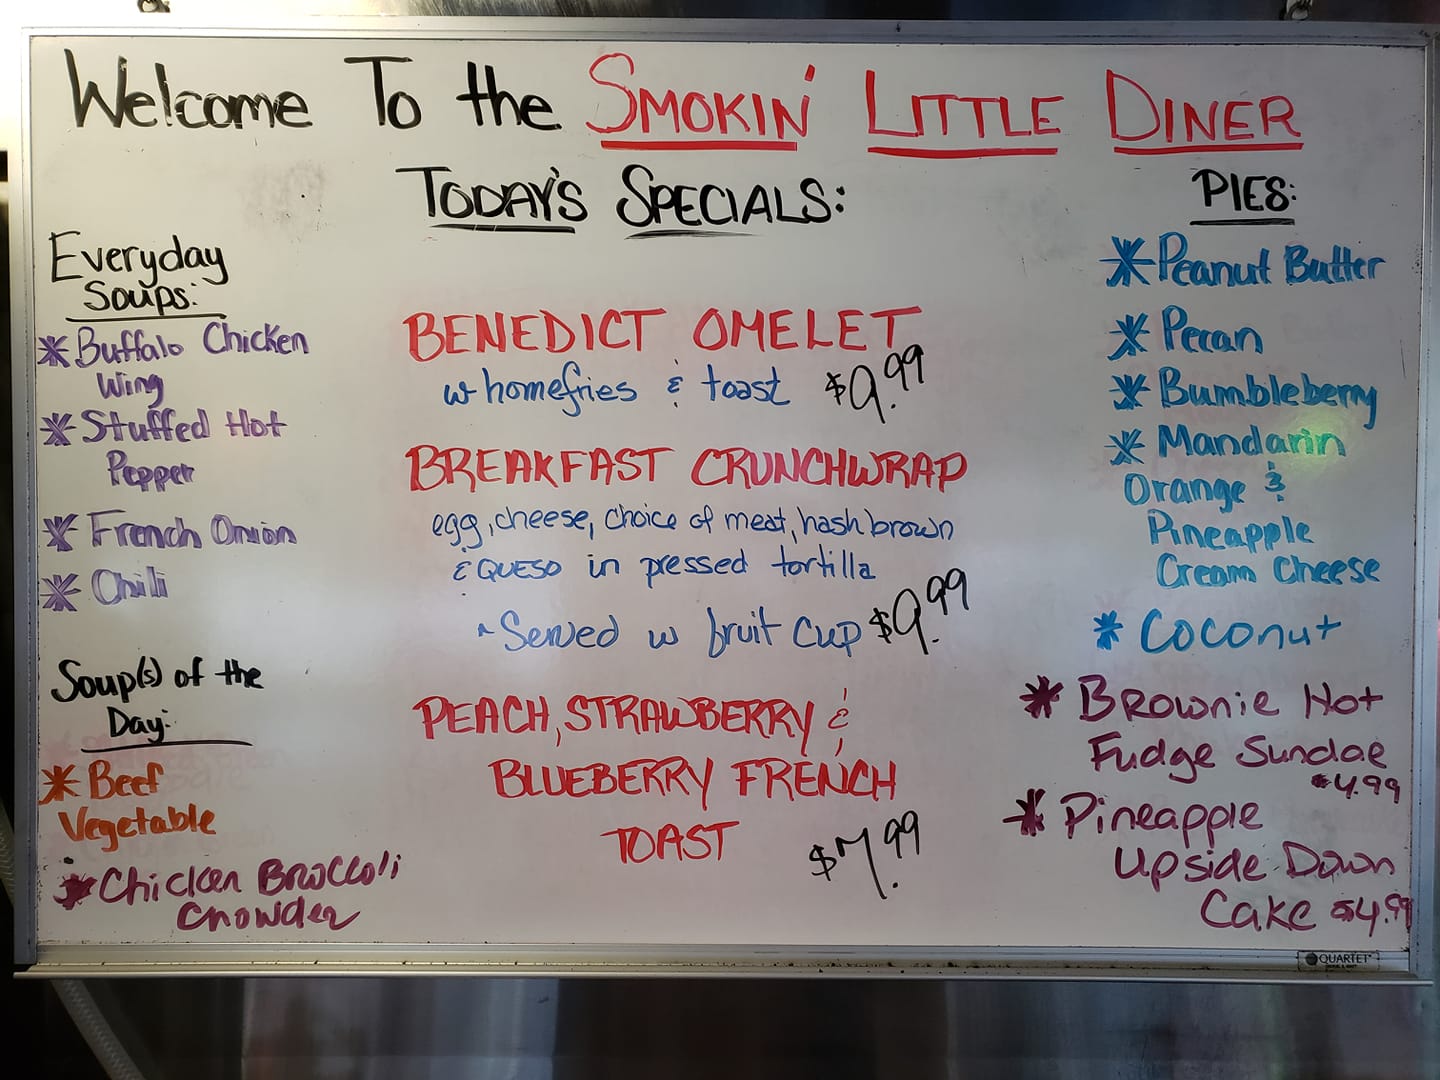 Welcome To the SMOKIN' LITTLE DINER
TODAY'S SPECIALS:
Everyday
Soups:
* Buffalo Chicken
Wing
* Stuffed Hot
Pepper
* French Onion
* Chili
Soup(s) of the
Day:
* Beef
Vegetable
* Chicken Broccoli
Chowder
BENEDICT OMELET
w homefries & toast $9.99
BREAKFAST CRUNCHWRAP
egg, cheese, choice of meat, hash brown
& QUESO in pressed tortilla
- Served w fruit cup $9.99
PEACH, STRAWBERRY &
BLUEBERRY FRENCH
TOAST $7.99
PIES:
* Peanut Butter
* Pecan
* Bumbleberry
* Mandarin
Orange &
Pineapple
Cream Cheese
* Coconut
* Brownie Hot
Fudge Sundae
$4.99
* Pineapple
Upside Down
Cake $4.99
QUARTET